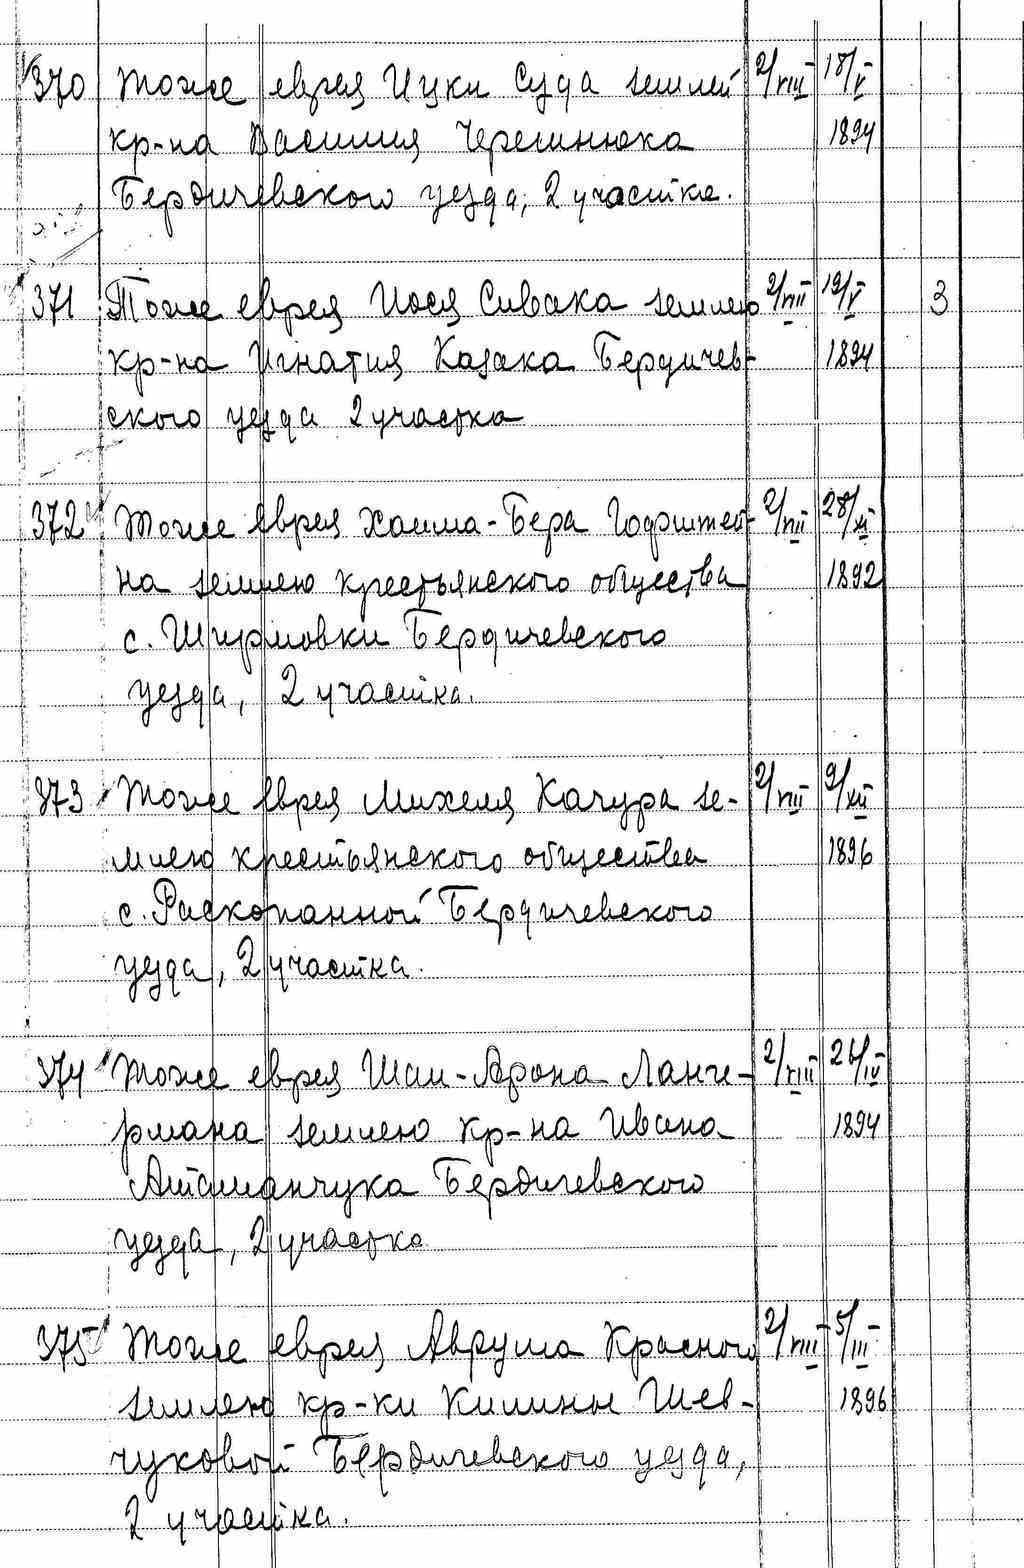 370 Тоже еврея Ицки Суда землей 2/VIII 18/V
кр-на Василия Черешнюка 1894
Бердичевского уезда, 2 участка.
371 Тоже еврея Иося Сивака землею 2/VIII 19/V 3
кр-на Игнатия Казака Бердичев- 1894
ского уезда 2 участка
372 Тоже еврея Хаима-Бера Гофштей- 2/VIII 28/XI
на землею крестьянского общества 1892
с. Ширмовки Бердичевского
уезда, 2 участка.
373 Тоже еврея Михеля Качура зе- 2/VIII 9/XII
млею крестьянского общества 1896
с. Раскопанной Бердичевского
уезда, 2 участка.
374 Тоже еврея Шаи-Арона Ланге- 2/VIII 26/IV
рмана землею кр-на Ивана 1894
Атаманчука Бердичевского
уезда, 2 участка
375 Тоже еврея Аврума Красного 2/VIII 5/III
землею кр-ки Килины Шев- 1896
чуковой Бердичевского уезда,
2 участка.